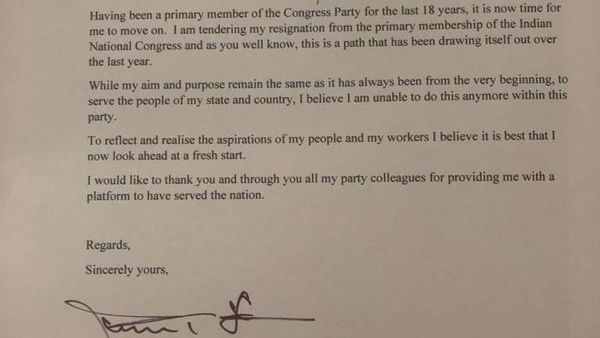 Having been a primary member of the Congress Party for the last 18 years, it is now time for
me to move on. I am tendering my resignation from the primary membership of the Indian
National Congress and as you well know, this is a path that has been drawing itself out over
the last year.
While my aim and purpose remain the same as it has always been from the very beginning, to
serve the people of my state and country, I believe I am unable to do this anymore within this
party.
To reflect and realise the aspirations of my people and my workers I believe it is best that I
now look ahead at a fresh start.
I would like to thank you and through you all my party colleagues for providing me with a
platform to have served the nation.
Regards,
Sincerely yours,